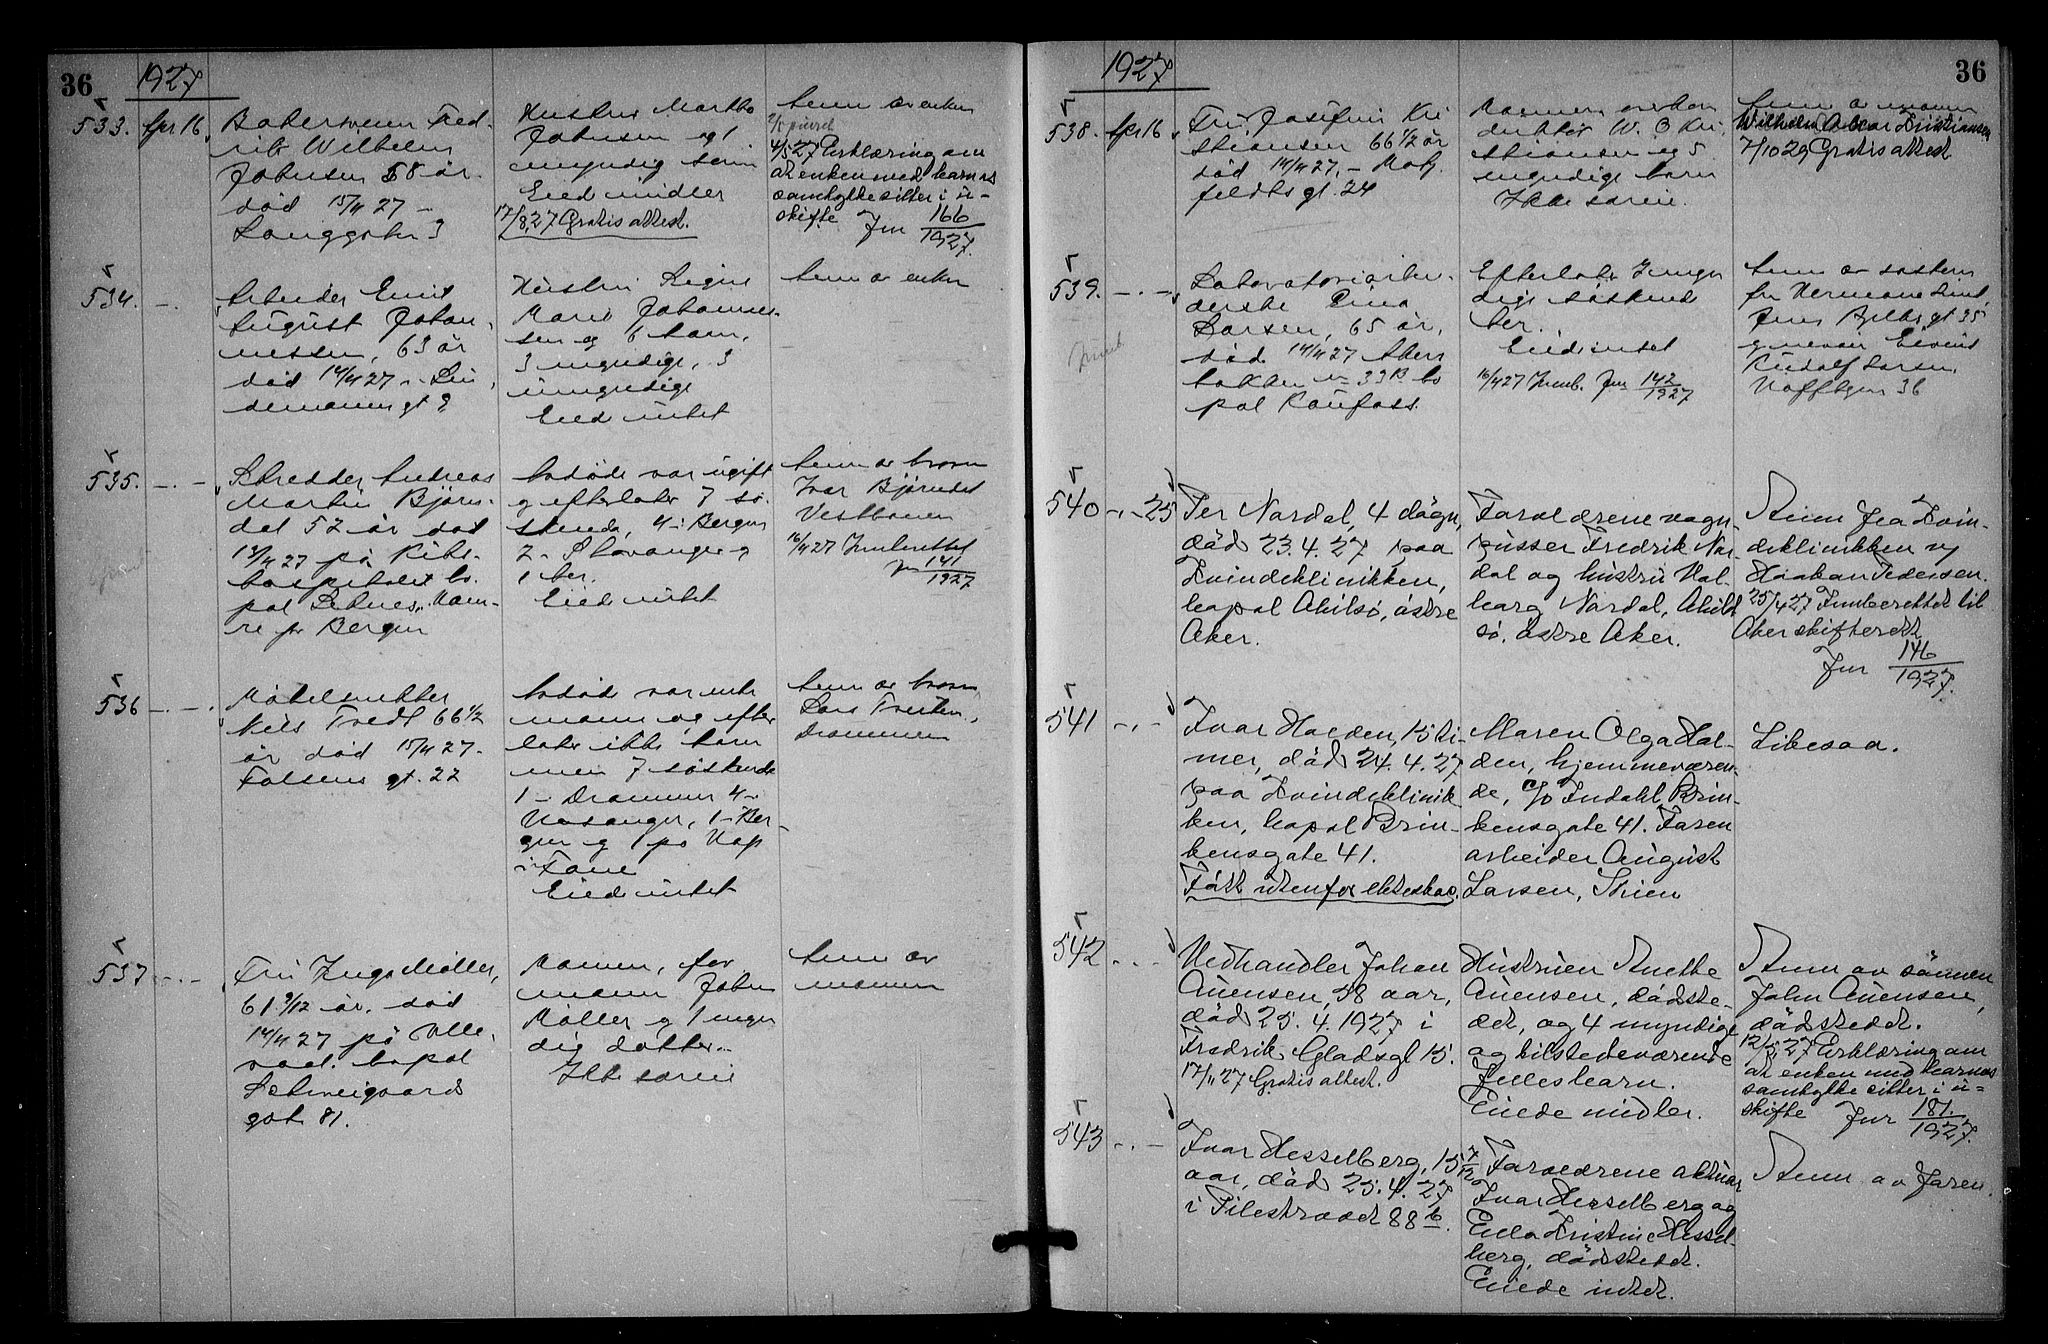 36 1927
533. Apr 16.
Badesvenn Fred-
rik Wilhelm
Johnsen 58 år.
død 15/4 27 -
Langgaten 3
Hustru Martha
Johnsen og 1
myndig sønn
Eied midler
17/8.27 Gratis attest.
Anm av enken
4/5 27 Erklæring om
at enken med barnas
samtykke sitter i u-
skifte Jnr 166/1927.
534. - . -
Arbeider Emil
August Johan-
nessen, 63 år
død 14/4 27 - Lin-
demannsgt 9
Hustru Regine
Marie Johannes-
sen og 6 barn,
3 myndige, 3
umyndige
Eied intet
Anm av enken
535. - . -
Skredder Andreas
Martin Bjørn-
dal 52 år død
13/4 27 på Riks-
hospitalet bo-
pæl
re pr Bergen
Avdøde var ugift
og efterlater 7 sø-
skende, 4 i Bergen
2 - Stavanger og
1 her.
Eied intet
Anm av broren
Ivar Bjørndal
Vestbanen
16/4 27 Innberettet
Jnr 141/1927
536 - . -
Møbelsnekker
Nils Tvedt 66 1/2
år død 15/4 27 -
Folsens gt. 22
Avdøde var enke
mann og efter
later ikke barn
men 7 søskende
1 - Drammen 4 -
1 - Ber-
gen og 1 på
i Fane
Eied intet
Anm av broren
Lars
Drammen
537 - . -
Fru Inga Møller,
61 9/12 år. død
14/4 27 på Ulle-
vaal. bopæl
Schweigaards
gate 81.
Mannen, for
mann John
Møller og 1 myn
dig datter.
Ikke særeie
Anm av
mannen
1927 36
538. Apr 16.
Fru Josefine Kri
stiansen 66 1/2 år
død 14/4 27. -
feldts gt. 24
Mannen
duktør W. O Kri
stiansen og 5
myndige barn
Ikke særeie.
Anm av mannen
Wilhelm Oscar Kristiansen
7/10 29 Gratis attest
539. - . -
Laboratoriearbei-
derske
Larsen, 65 år,
død 14/4 27 Akers
bakken 33 B bo
pæl Raufoss.
Efterlater 2 myn
dige søskende
her.
Eied intet
16/4 27 Innb. Jnr 142/1927
Anm av søstern
fru Hermane Lund,
Jens Bjelkes gt 35
og nevøen Eivind
Rudolf Larsen,
36
540 - . - 25
Per Nordal, 4 døgn,
død 23. 4. 27 paa
Kvindeklinikken,
bopæl Abilsø, østre
Aker.
Forældrene vogn-
pusser Fredrik Nor-
dal og hustru Val-
borg Nordal, Abild-
sø, østre Aker.
Anm fra Kvin-
deklinikken v/
Haakon Pedersen.
25/4 27 Innberettet til
Aker skifterett
Jnr 146/1927.
541 - . -
Ivar Halden, 15 ti-
mer, død 24. 4. 27
paa Kvindeklinik-
ken, bopæl Brin-
kensgate 41.
Født utenfor ekteskap.
Maren Olga Hal-
den, hjemmeværen-
de, c/o Indahl, Brin-
kensgate 41. Faren
arbeider August
Larsen, Skien
Likesaa.
542 - . -
Vedhandler Johan
Evensen, 58 aar,
død 25. 4. 1927 i
Fredrik Gladsgt 15.
17/11 27 Gratis attest.
Hustruen Anette
Evensen, dødste-
det, og 4 myndige
og tilstedeværende
fellesbarn.
Eiede midler.
Anm av sønnen
John Evensen,
dødstedet.
12/5 27 Erklæring om
at enken med barnas
samtykke sitter i u-
skifte Jnr 181/1927.
543 - . -
Ivar Hesselberg, 15 7/12
aar, død 25. 4. 27
i Pilestrædet 88 b.
Forældrene aktuar
Ivar Hesselberg og
Ella Kristine Hessel-
berg, dødstedet.
Eiede intet.
Anm av faren.